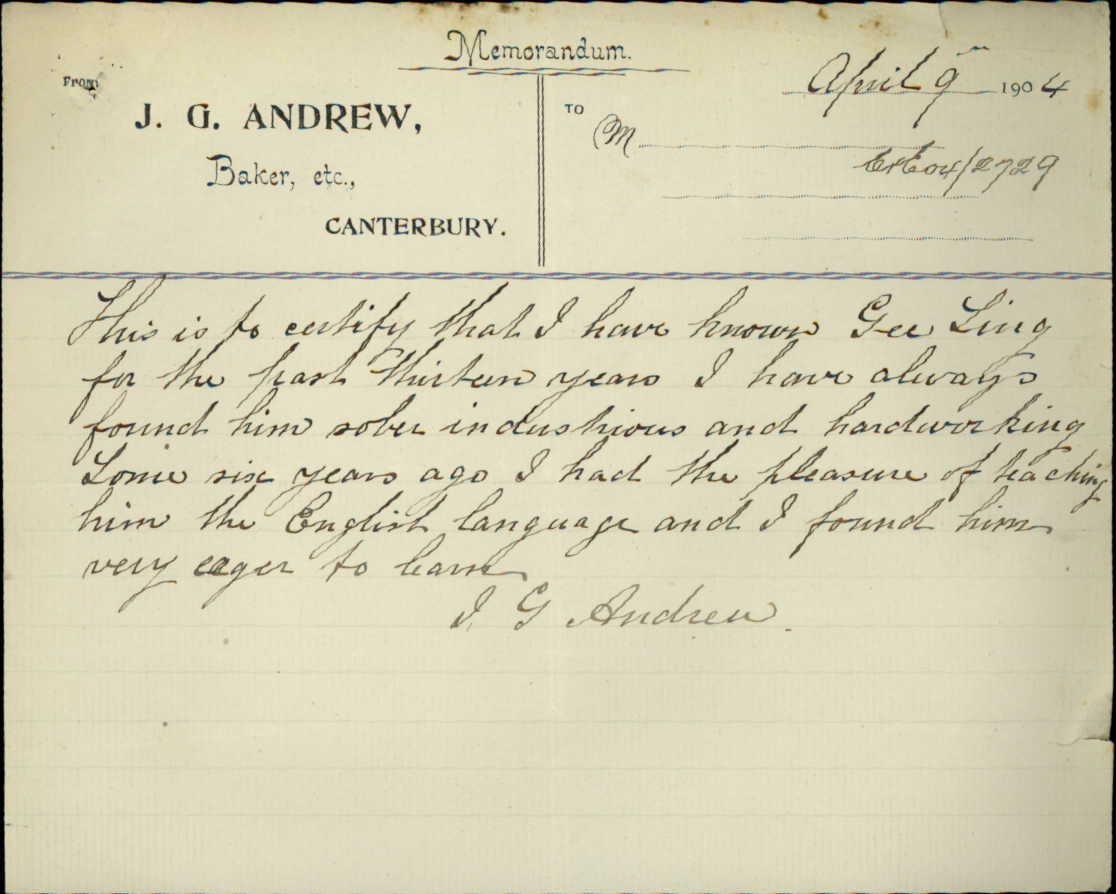 Memorandum.
From
J. G. ANDREW,
Baker, etc.,
CANTERBURY.
April 9th 1904
TO
M
04/2729
This is to certify that I have known Gee Ling
for the past thirteen years I have always
found him sober industrious and hardworking
Some six years ago I had the pleasure of teaching
him the English language and I found him
very eager to learn
J. G Andrew.